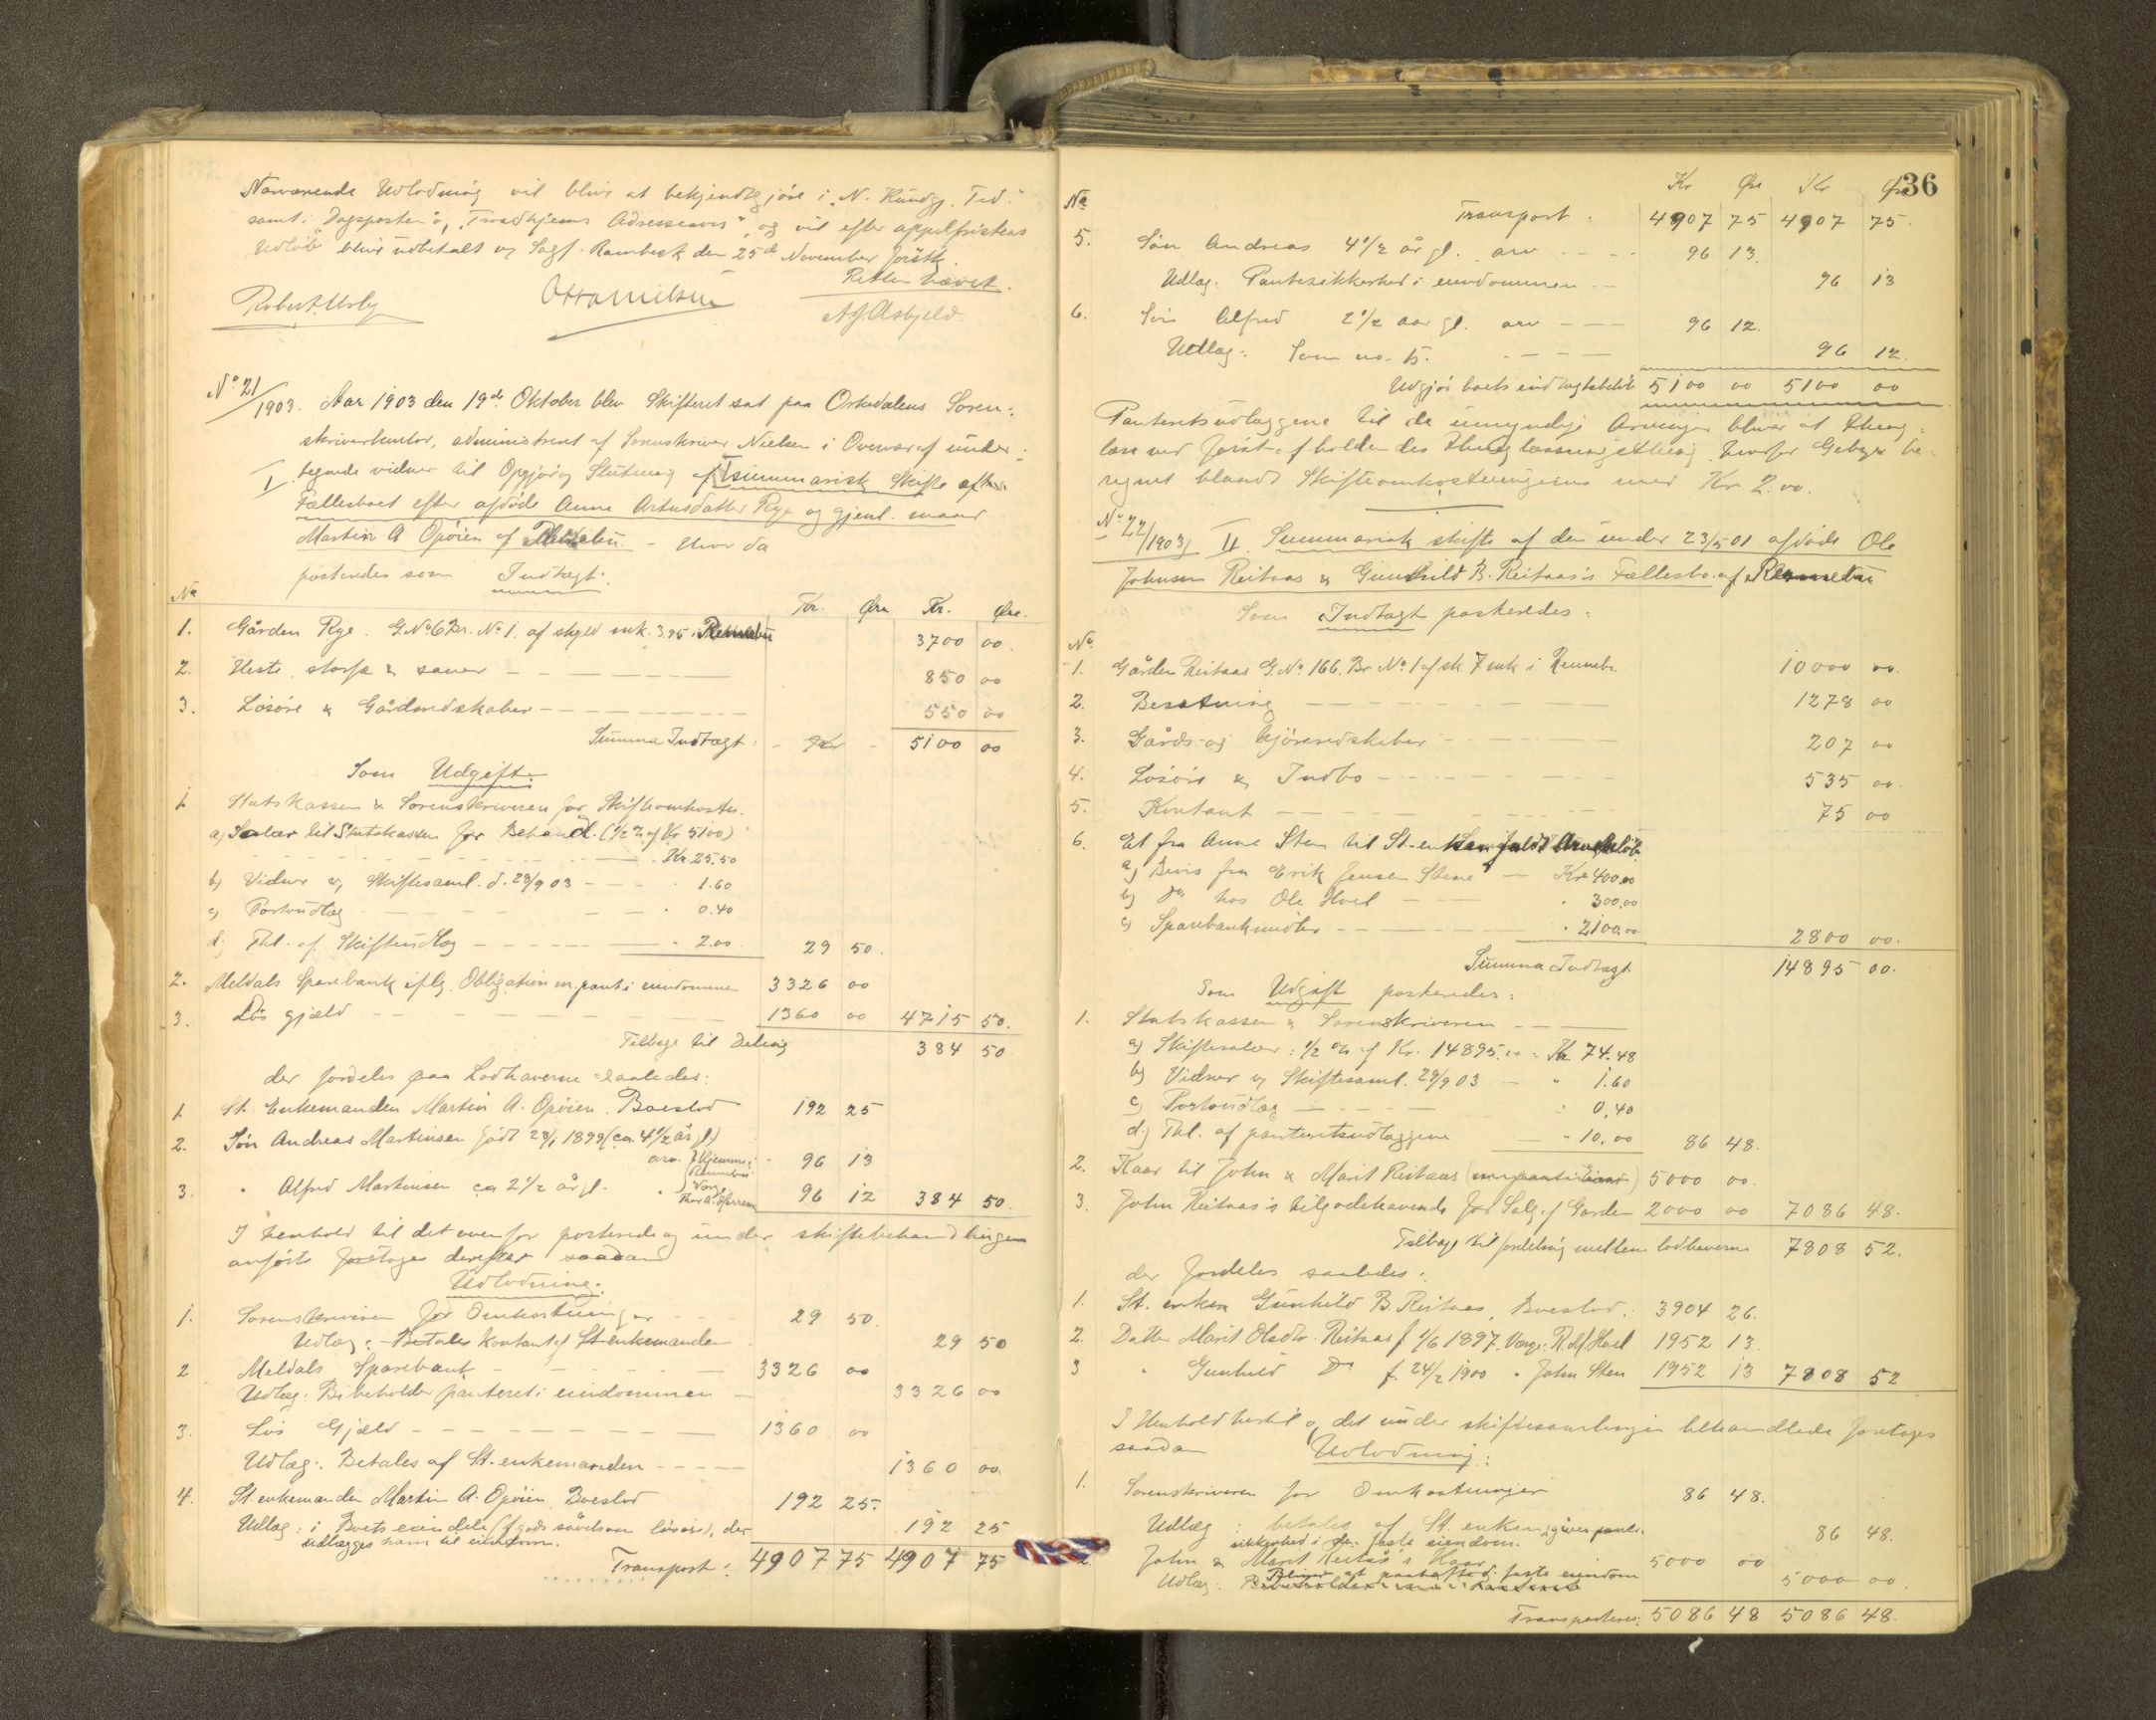 Nærværende Udlodning vil blive at bekjendtgjøre i "N. Kundgj. Tid."
samt i "Dagsposten" og "Trondhjems Adresseavis", og vil efter appelfristens
Udløb blive udbetalt ved Sagf. Rambeck den 25de November førstk.
Retten hævet.
Robert Usby Otto Nilsen A J Asbjeld.
No. 21/1903. Aar 1903 den 19de Oktober blev Skifteret sat paa Orkedalens Soren-
skriverkontor, administreret af Sorenskriver Nielsen i Overvær af under-
tegnede vidner til Opgjør og Slutning af
I summarisk Skifte efter
Fællesboet efter afdøde Anne Arntsdatter Rye og gjenl. mand
Martin A Opøien af - Hvor da
posteredes som Indtægt:
No Kr. Øre Kr. Øre.
1. Gården Rye. G.No 6 Br. No 1 af skyld mk. 3.95 i Rennebu 3700 00.
2. Heste, storfæ & sauer - - - 850 00
3. Løsøre & Gårdsredskaber - - - 550 00
Summa Indtægt: - Kr - 5100 00
Som Udgift:
1. Statskassen & Sorenskriveren for Skifteomkostn.
a) Salær til Statskassen for Behand. (1/2 % af Kr 5100)
- - - Kr. 25.50
b) Vidner v. Skiftesaml. d. 29/9 03 - - - 1.60
c) Portoudlæg - - - 0.40
d) Thl. af Skifteudlæg - - - 2.00. 29 50.
2. Meldals Sparebank iflg. Obligation m. pant i eiendommen 3326 00
3. Løs gjæld - - - 1360 00 4715 50.
Tilbage til Deling 384 50.
der fordeles paa Lodhaverne saaledes:
1. St. Enkemanden Martin A. Opøien. Boeslod 192 25
2. Søn Andreas Martinsen født 28/1 1899 (ca. 4 1/2 år gl.)
arv. Hjemme: Rennebu - 96 13
3. " Alfred Martinsen ca 2 1/2 år gl. " Værge 96 12 384 50.
I Henhold til det ovenfor posterede og under skiftebehandlingen
anførte foretoges derefter saadan
Udlodning:
1. Sorenskriveren for Omkostninger - - - 29 50.
Udlæg: - Betales kontant af St. enkemanden 29 50
2 Meldals Sparebank - - - 3326 00
Udlæg: Bibeholder panteret i eiendommen - 3326 00
3. Løs Gjæld - - - 1360 00
Udlæg: Betales af St. enkemanden - - - 1360 00
4. St. enkemanden Martin A. Opøien. Boeslod 192 25.
Udlæg: i Boets eiendele (f. gods såvelsom løsøre), der 192 25
udlægges ham til eiendom.
Transport: 4907 75 4907 75
36
No Kr Øre Kr Øre
Transport: 4907 75 4907 75.
5. Søn Andreas 4 1/2 år gl. arv - - - 96 13.
Udlæg: Pantesikkerhed i eiendommen - - 96 13
6. Søn Alfred 2 1/2 aar gl. arv - - - 96 12.
Udlæg: Som no. 5. - - - 96 12.
Udgjør boets indtægtsbeløb 5100 00 5100 00
Panteretsudlæggene til de umyndige Arvinger bliver at thing-
læse ved først afholdendes thinglæsningsthing, hvorfor Gebyr be-
regnet blandt Skifteomkostningerne med Kr. 2.00.
No 22/1903 II. Summarisk skifte af den under 23/5 01 afdøde Ole
Johnsen Reitaas & Gunhild B. Reitaas's Fællesbo af Rennebu
Som Indtægt posteredes:
No
1. Gården Reitaas G. No. 166. Br No. 1 af sk. 7 mk i Rennebu. 10000 00.
2. Besætning - - - 1278 00
3. Gårds- og kjøreredskaber - - - 207 00
4. Løsøre & Indbo - - - 535 00.
5. Kontant - - - 75 00
6. Et fra Anne Sten til St. enken
a) Bevis fra Erik Jensen Stene - Kr 400.00
b) Do hos Ole Hoel - - - 300.00
c) Sparebankmidler - - - 2100.00 2800 00.
Summa Indtægt 14895 00.
Som Udgift posteredes:
1. Statskassen & Sorenskriveren - - -
a) Skiftesalær: 1/2 % af Kr. 14895.00 = Kr. 74.48
b) Vidner v. Skiftesaml. 29/9 03 - " 1.60
c) Portoudlæg - - - 0.40
d) Thl. af panteretsudlæggene - - 10.00 86 48.
2. Kaar til John & Marit Reitaas 5000 00.
3. John Reitaas's tilgodehavende for Salg af Gården 2000 00 7086 48.
Tilbage til fordeling mellem lodhaverne 7808 52.
der fordeles saaledes:
1. St. enken Gunhild B. Reitaas, Boeslod: 3904 26.
2. Datter Marit Olsdtr. Reitaas f. 1/6 1897. Værge: R. M. Hoel 1952 13.
3 " Gunhild Do f. 24/2 1900 " John Sten 1952 13 7808 52
I Henhold hertil og det under skiftesamlingen behandlede foretoges
saadan Udlodning:
1. Sorenskriveren for Omkostninger 86 48.
Udlæg: betales af St. enken, gives pante- 86 48.
sikkerhed i den faste eiendom.
2. John & Marit Reitås's Kaar 5000 00
Udlæg: Bliver at panthæftes i faste eiendom 5000 00.
Transporteres: 5086 48 5086 48.